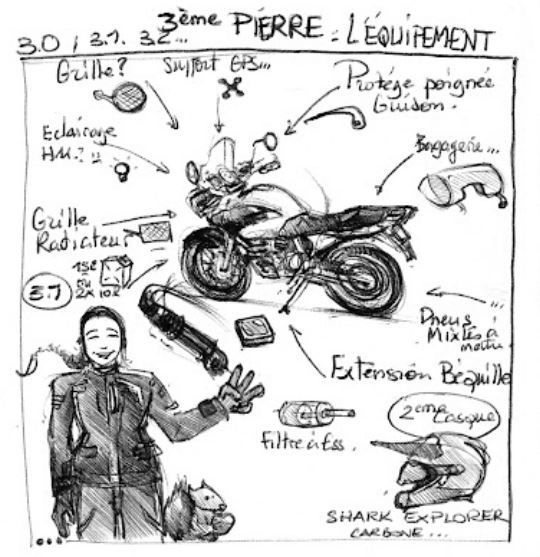 3ème PIERRE : L'ÉQUIPEMENT
3.0 / 3.1. 3.2...
Grille?
Support GPS...
Protège poignée
Guidon.
Eclairage
H.M.? !!
Bagagerie...
Grille
Radiateur
3.1
15€
ou
2x 10€
...
Pneus
Mixtes à
mettre
Extension Béquille
Filtre à Ess.
2ème
Casque
SHARK EXPLORER
CARBONE...
...